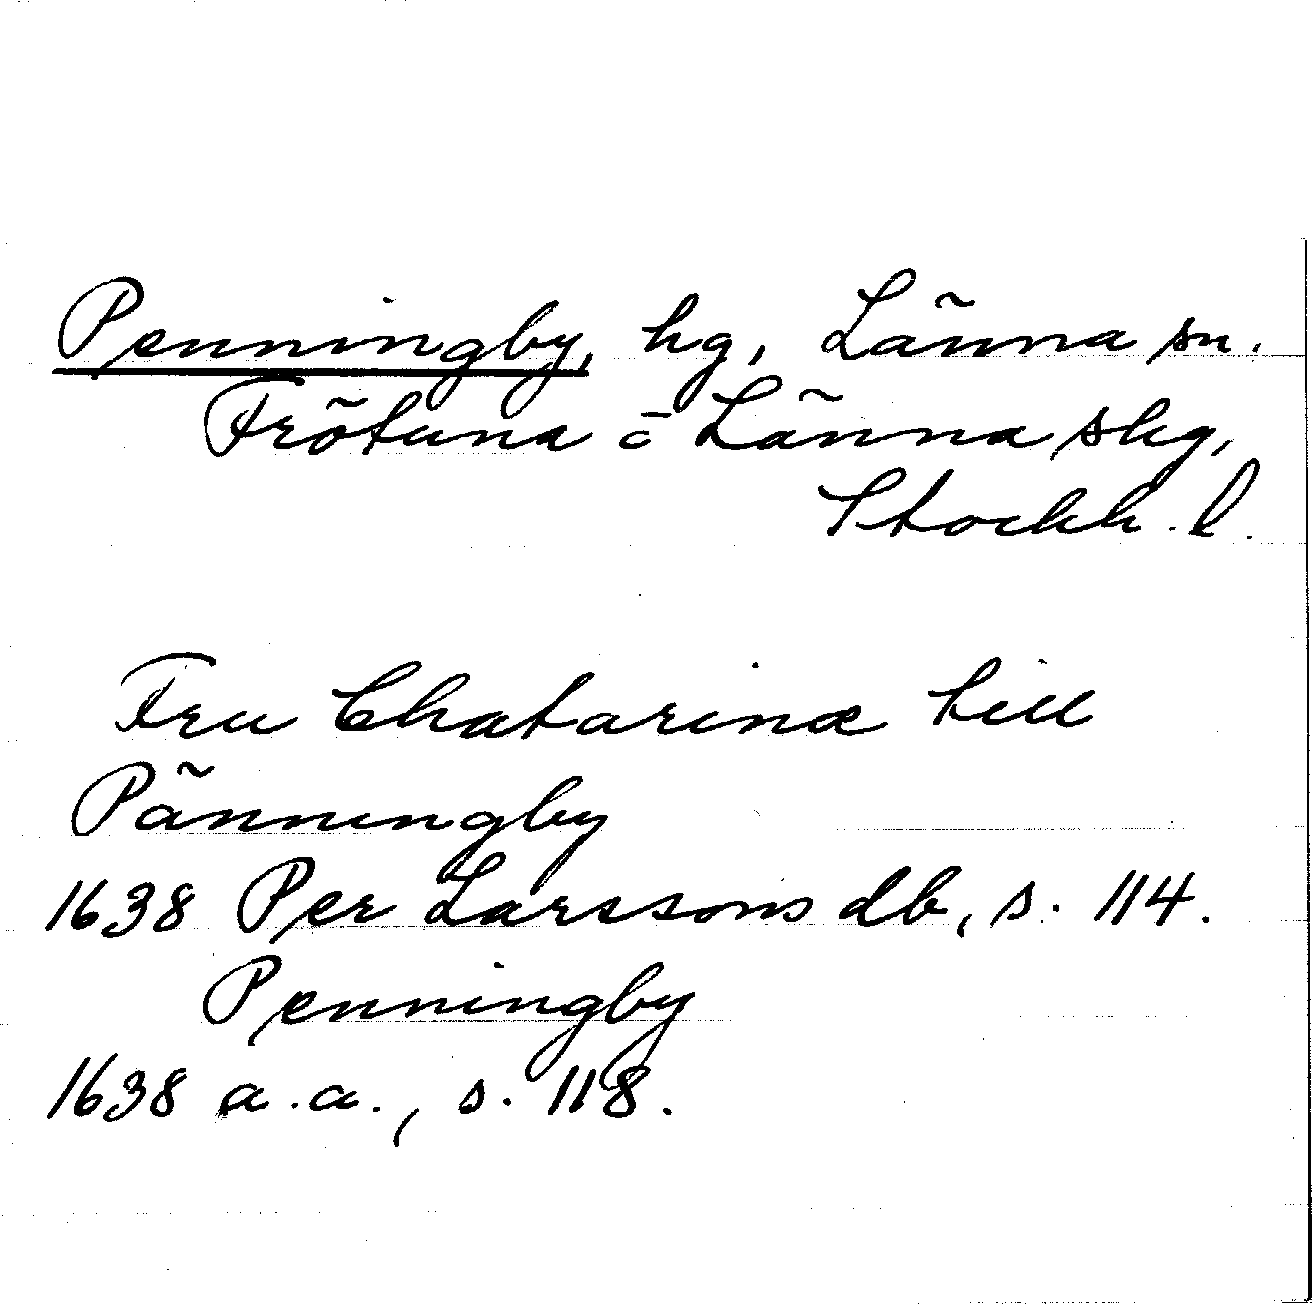 Penningby, hg, Länna sn.
Frötuna o Länna skg,
Stockh. l.
Fru Chatarina till
Pänningby
1638 Per Larssons db, s. 114.
Penningby
1638 a.a., s. 118.